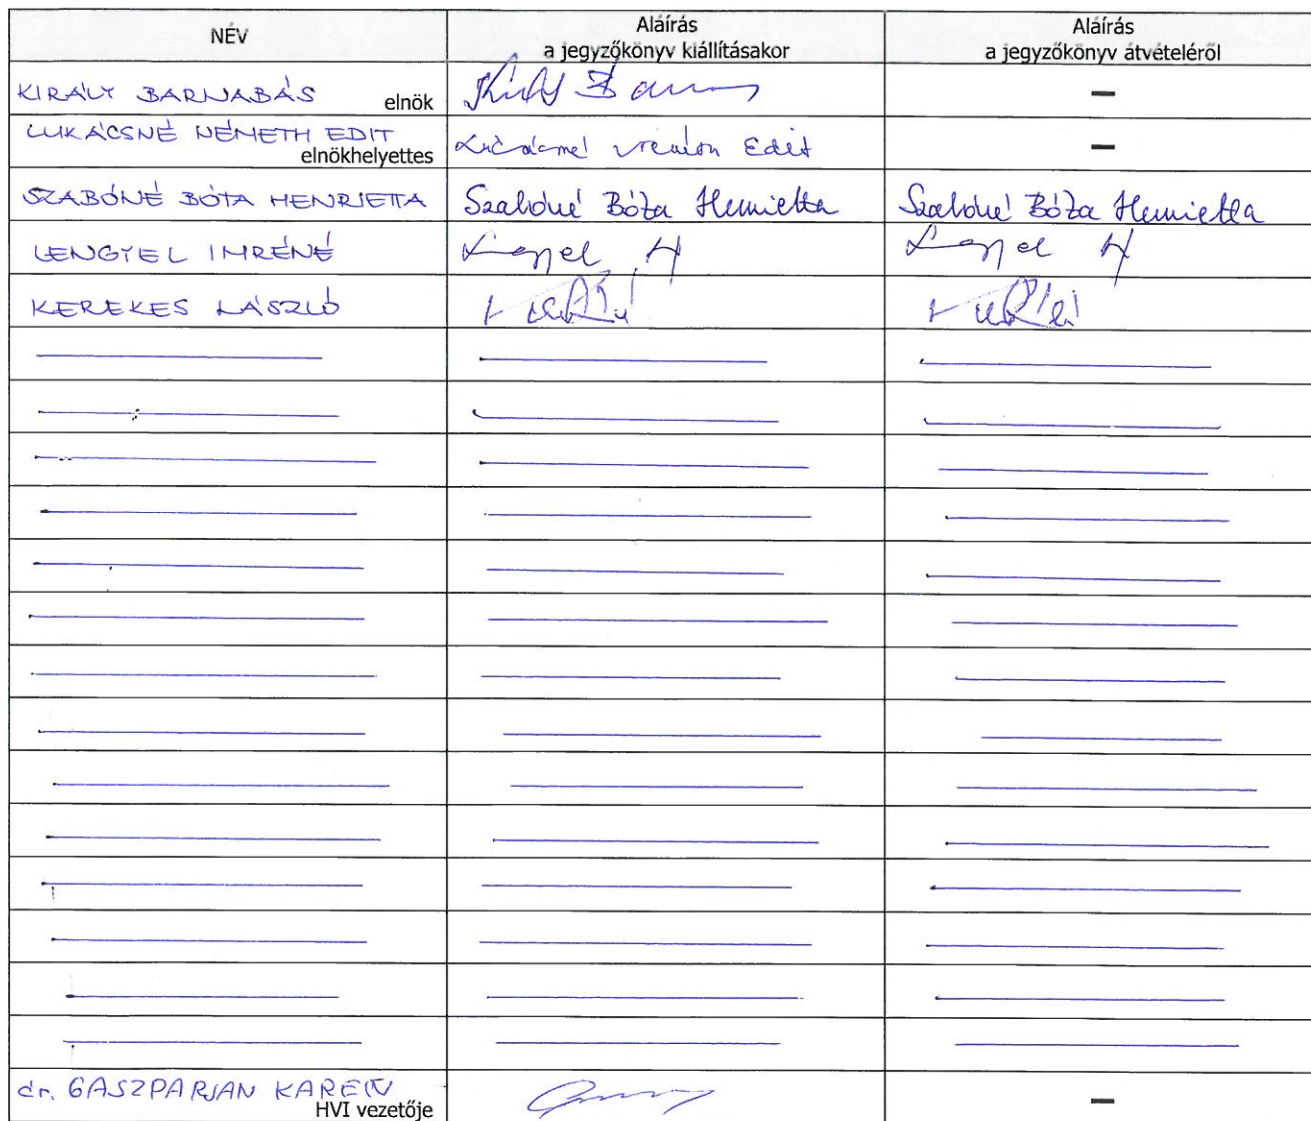 NÉV
Aláírás
a jegyzőkönyv kiállításakor
Aláírás
a jegyzőkönyv átvételéről
KIRÁLY BARNABÁS elnök
—
LUKÁCSNÉ NÉMETH EDIT
elnökhelyettes Edit
—
SZABÓNÉ BÓTA HENRIETTA Szabóné Bóta Henrietta Szabóné Bóta Henrietta
LENGYEL IMRÉNÉ
KEREKES LÁSZLÓ
dr. GASZPARJAN KAREN
HVI vezetője
—